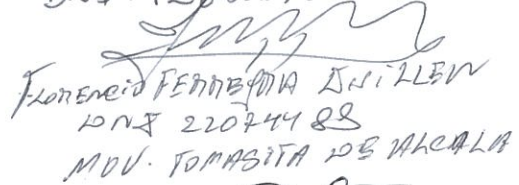 FLORENCIO FERREYRA GUILLEN
DNI 22074488
MOV. TOMASITA DE ALCALA